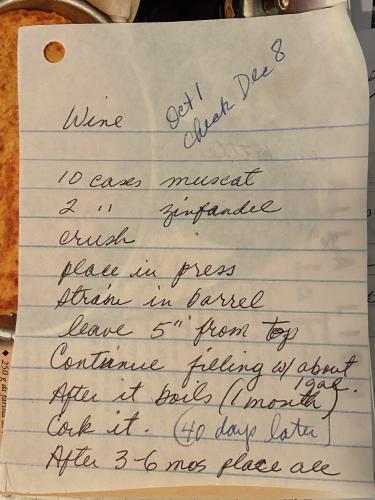 Oct 1
check Dec 8
Wine
10 cases muscat
2 " zinfandel
crush
place in press
strain in barrel
leave 5" from top
Continue filling w/ about
1 gal.
After it boils (1 month)
Cork it. (40 days later)
After 3-6 mos place all